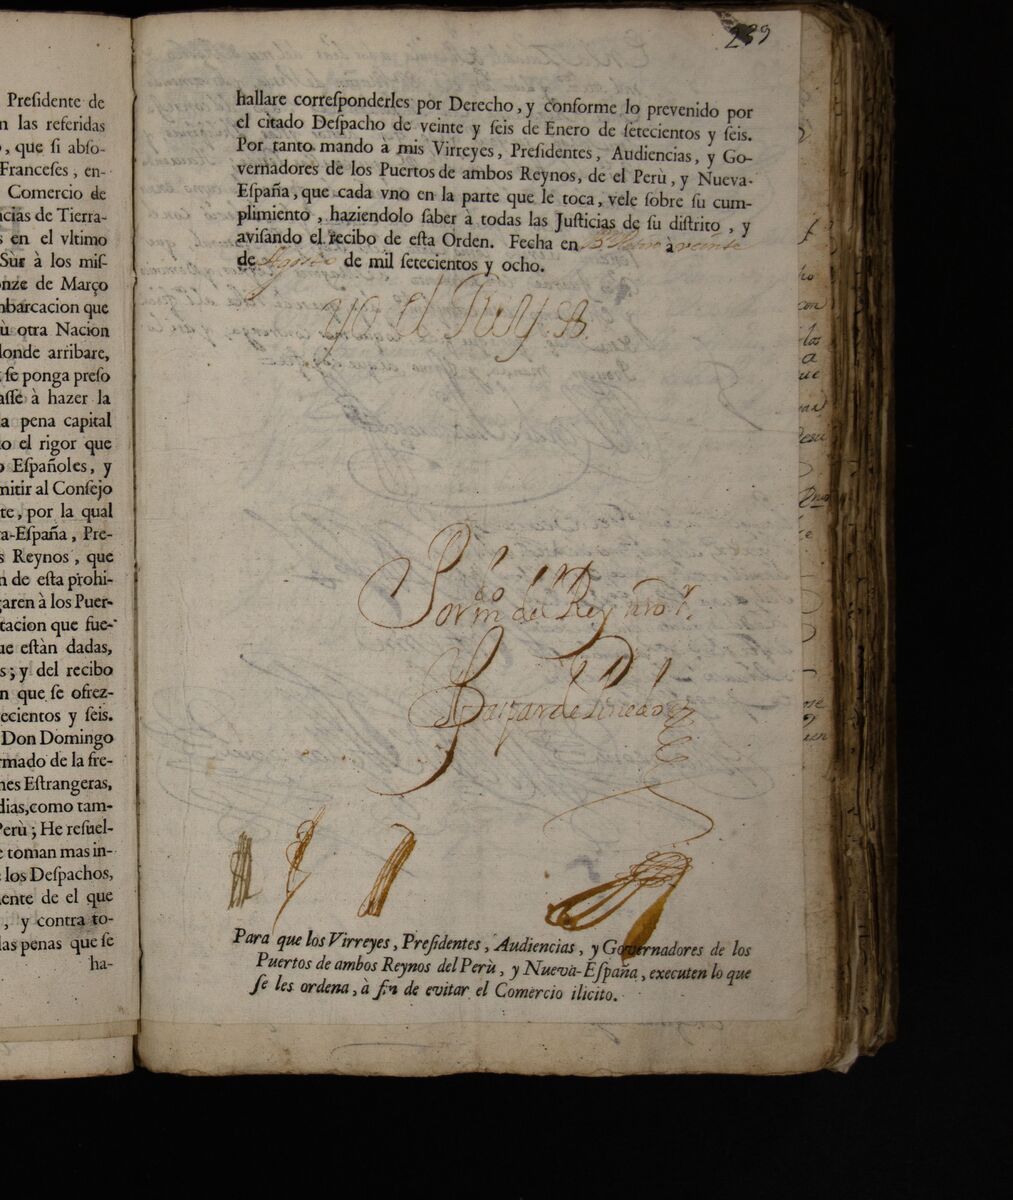 Presidente de
n las referidas
, que si abso-
Franceses, en-
Comercio de
ncias de Tierra-
s en el vltimo
Sur à los mis-
onze de Março
mbarcacion que
ù otra Nacion
donde arribare,
se ponga preso
asse à hazer la
a pena capital
o el rigor que
o Españoles, y
mitir al Consejo
te, por la qual
a-España, Pre-
s Reynos, que
n de esta prohi-
garen à los Puer-
tacion que fue-
ue estàn dadas,
s; y del recibo
n que se ofrez-
ecientos y seis.
Don Domingo
rmado de la fre-
nes Estrangeras,
dias, como tam-
Perù; He resuel-
e toman mas in-
los Despachos,
ente de el que
, y contra to-
las penas que se
ha-
239
hallare corresponderles por Derecho, y conforme lo prevenido por
el citado Despacho de veinte y seis de Enero de setecientos y seis.
Por tanto mando à mis Virreyes, Presidentes, Audiencias, y Go-
vernadores de los Puertos de ambos Reynos, de el Perù, y Nueva-
España, que cada vno en la parte que le toca, vele sobre su cum-
plimiento, haziendolo saber à todas las Justicias de su distrito, y
avisando el recibo de esta Orden. Fecha en à veinte
de Agosto de mil setecientos y ocho.
yo el Rey
Por mdo del Rey nro sr.
Gaspar de Pinedo
Para que los Virreyes, Presidentes, Audiencias, y Governadores de los
Puertos de ambos Reynos del Perù, y Nueva-España, executen lo que
se les ordena, à fin de evitar el Comercio ilicito.